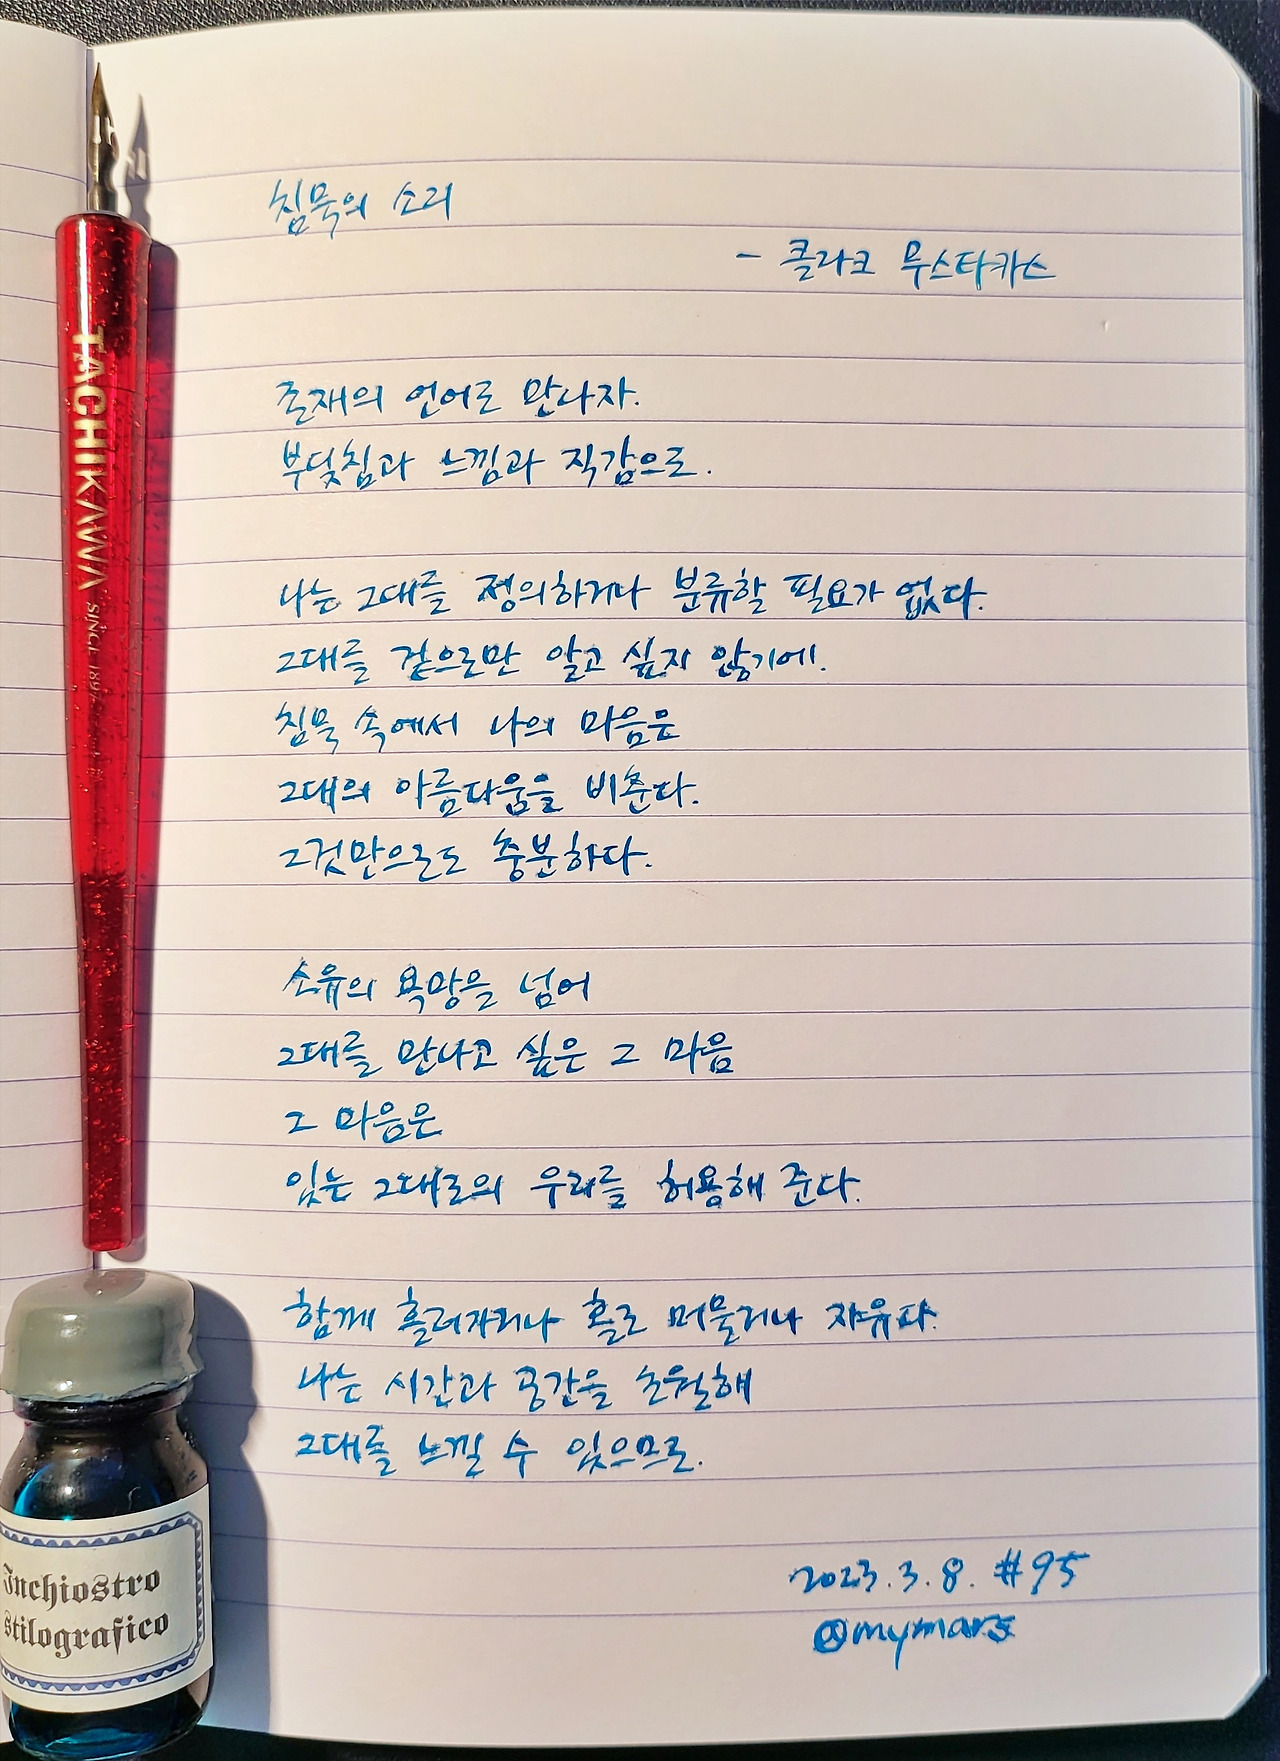 침묵의 소리
- 클라크 무스타카스
존재의 언어로 만나자.
부딪침과 느낌과 직감으로.
나는 그대를 정의하거나 분류할 필요가 없다.
그대를 겉으로만 알고 싶지 않기에.
침묵 속에서 나의 마음은
그대의 아름다움을 비춘다.
그것만으로도 충분하다.
소유의 욕망을 넘어
그대를 만나고 싶은 그 마음
그 마음은
있는 그대로의 우리를 허용해 준다.
함께 흘러가거나 홀로 머물거나 자유다.
나는 시간과 공간을 초월해
그대를 느낄 수 있으므로.
2023.3.8. #95
@mymars
TACHIKAWA
SINCE 1897
Inchiostro
stilografico